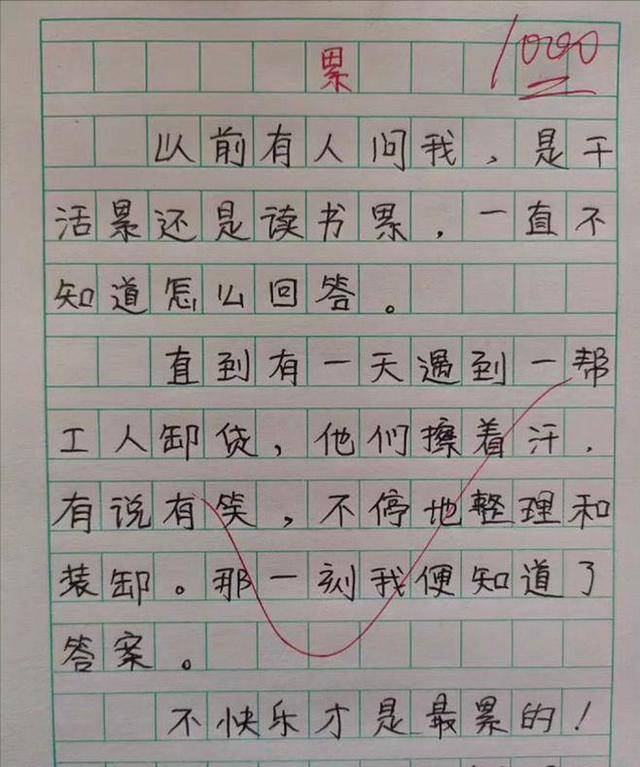 累
1000
以前有人问我，是干
活累还是读书累，一直不
知道怎么回答。
直到有一天遇到一帮
工人卸货，他们擦着汗，
有说有笑，不停地整理和
装卸。那一刻我便知道了
答案。
不快乐才是最累的！